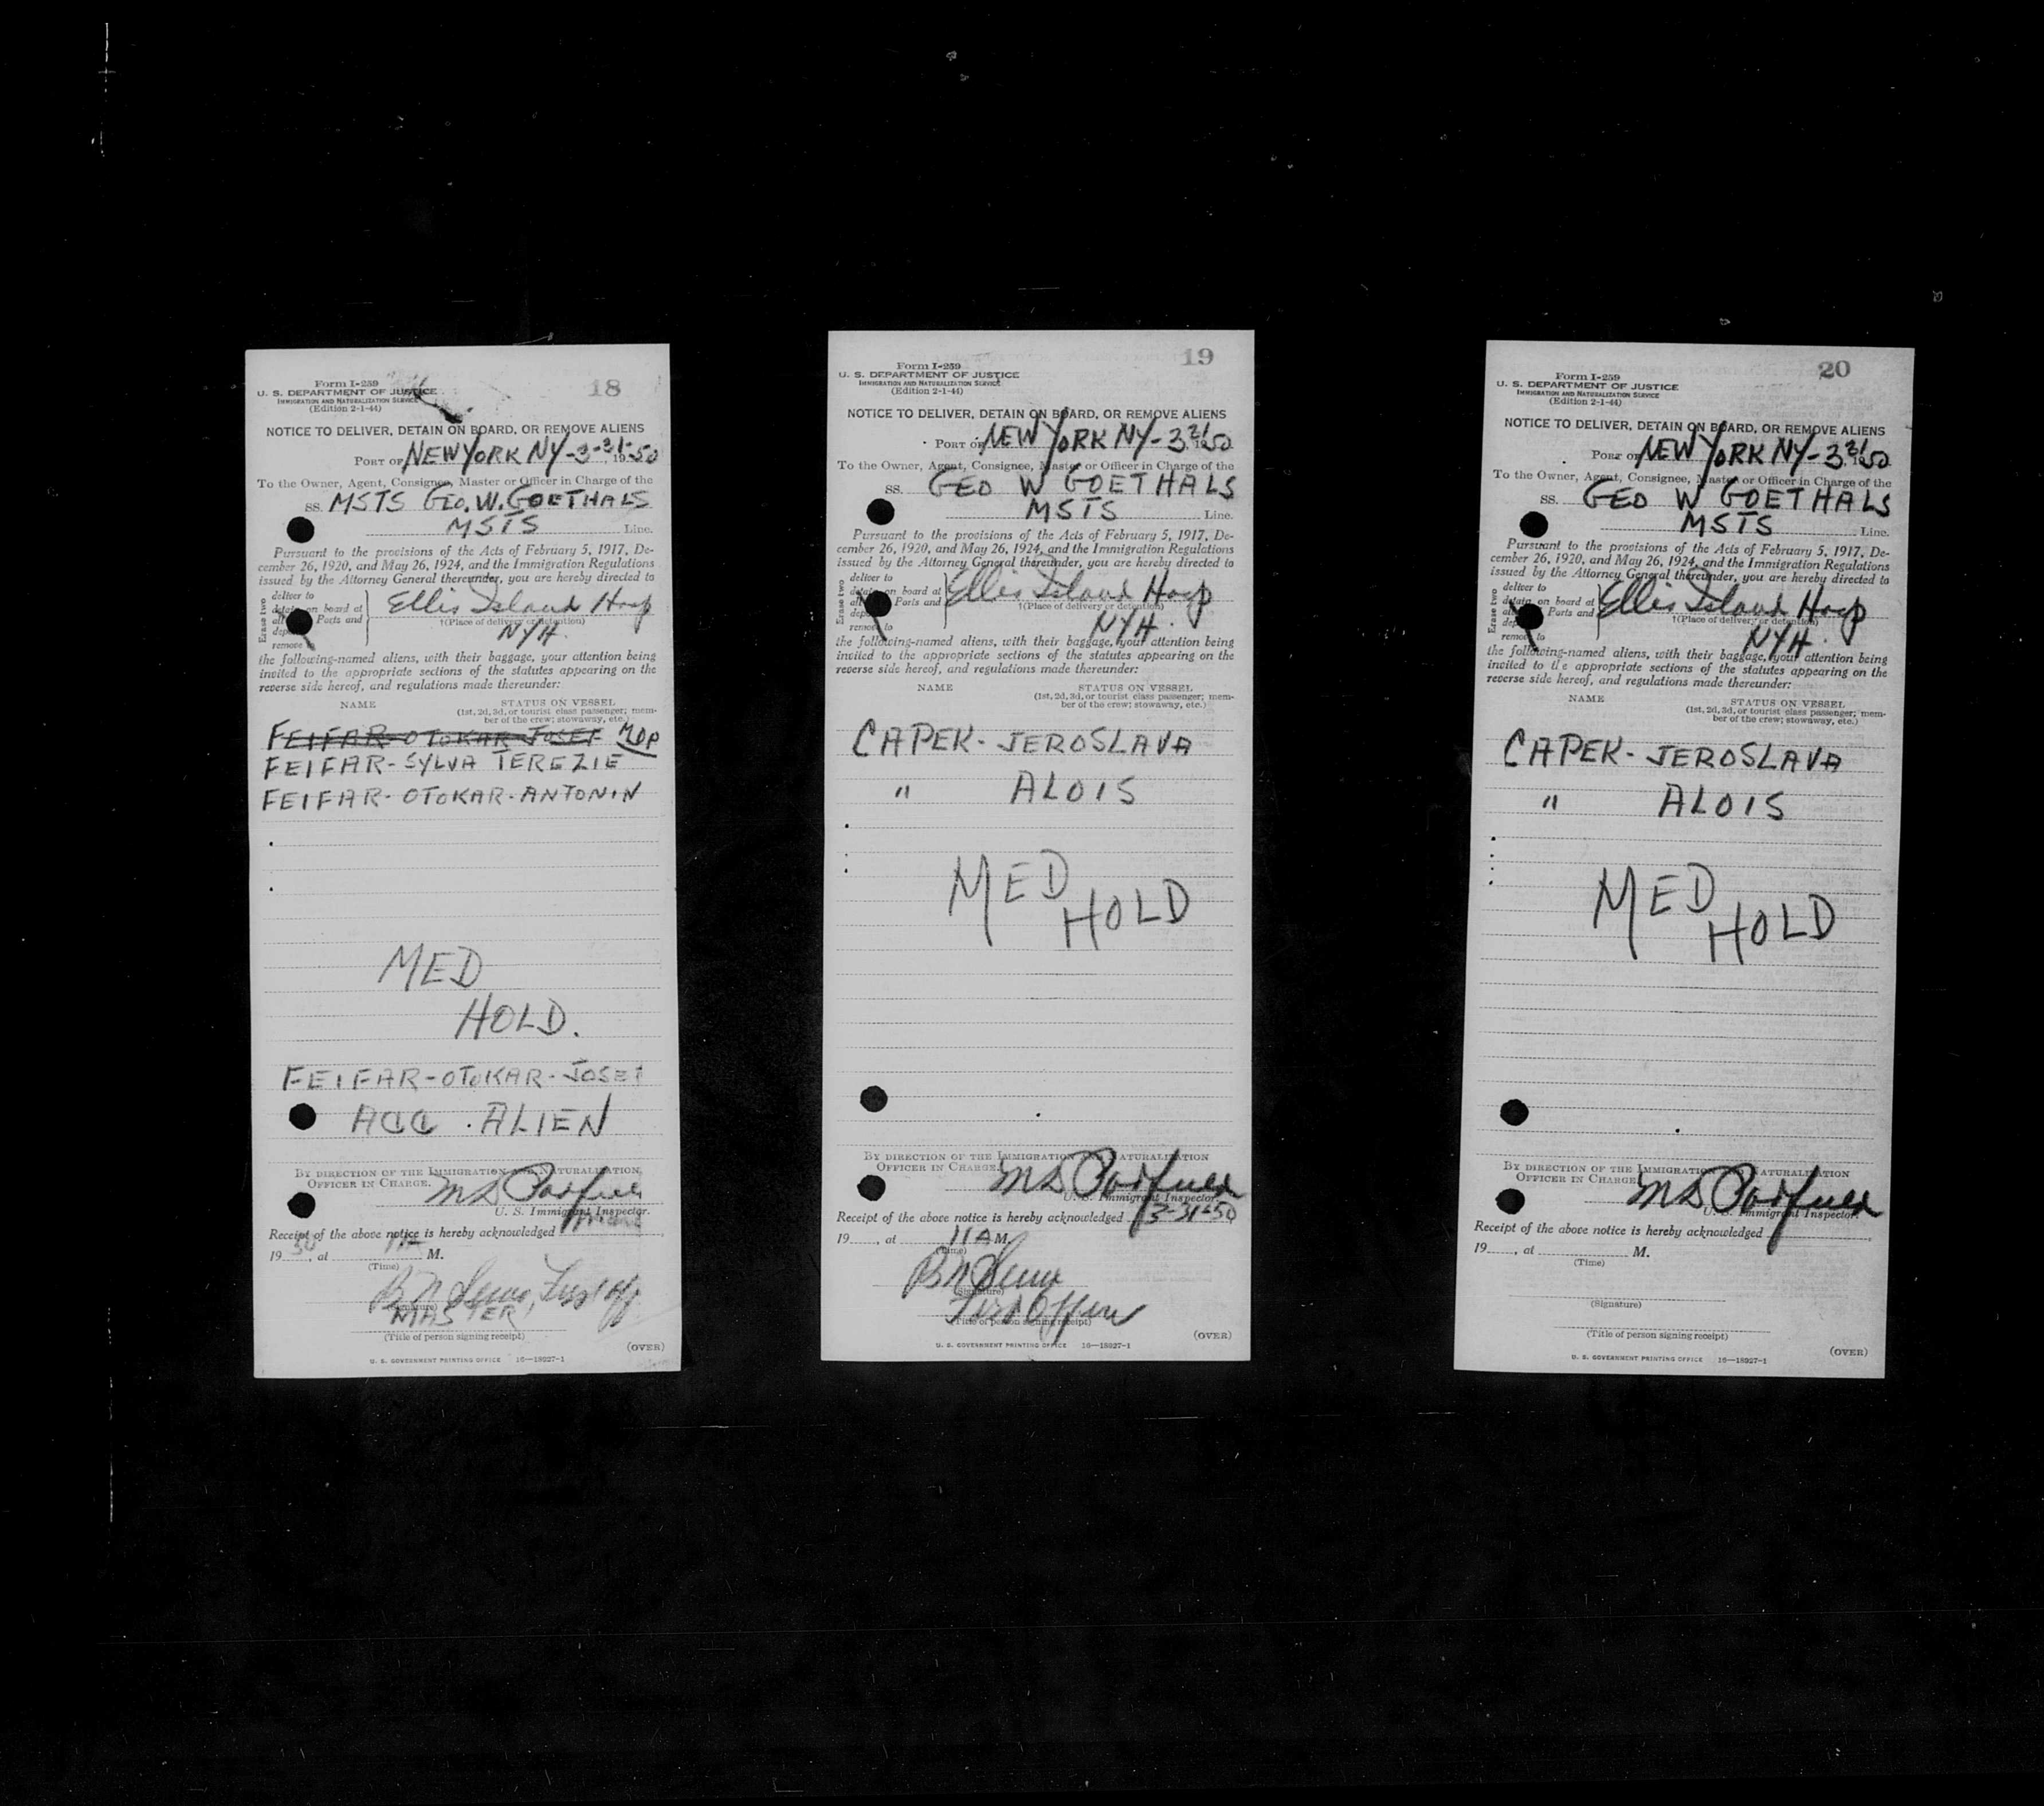 18
Form I-259
U. S. DEPARTMENT OF JUSTICE
IMMIGRATION AND NATURALIZATION SERVICE
(Edition 2-1-44)
NOTICE TO DELIVER, DETAIN ON BOARD, OR REMOVE ALIENS
PORT OF NEW YORK NY-3-31-1950
To the Owner, Agent, Consignee, Master or Officer in Charge of the
SS. MSTS GEO. W. GOETHALS
MSTS Line.
Pursuant to the provisions of the Acts of February 5, 1917, De-
cember 26, 1920, and May 26, 1924, and the Immigration Regulations
issued by the Attorney General thereunder, you are hereby directed to
Erase two
deliver to
detain on board at
all Ports and
remove
Ellis Island Hosp
†(Place of delivery or detention)
NYH.
the following-named aliens, with their baggage, your attention being
invited to the appropriate sections of the statutes appearing on the
reverse side hereof, and regulations made thereunder:
NAME STATUS ON VESSEL
(1st, 2d, 3d, or tourist class passenger; mem-
ber of the crew; stowaway, etc.)
FEIFAR-OTOKAR-JOSEF
FEIFAR-SYLVA TEREZIE
FEIFAR-OTOKAR-ANTONIN
MED
HOLD.
FEIFAR-OTOKAR-JOSEF
ACC. ALIEN
BY DIRECTION OF THE IMMIGRATION AND NATURALIZATION
OFFICER IN CHARGE.
U. S. Immigrant Inspector.
Receipt of the above notice is hereby acknowledged
1950, at 11A M.
(Time)
(Signature)
MASTER
(Title of person signing receipt)
(OVER)
U. S. GOVERNMENT PRINTING OFFICE 16—18927-1
19
Form I-259
U. S. DEPARTMENT OF JUSTICE
IMMIGRATION AND NATURALIZATION SERVICE
(Edition 2-1-44)
NOTICE TO DELIVER, DETAIN ON BOARD, OR REMOVE ALIENS
PORT OF NEW YORK NY-3 31 1950
To the Owner, Agent, Consignee, Master or Officer in Charge of the
SS. GEO W GOETHALS
MSTS Line.
Pursuant to the provisions of the Acts of February 5, 1917, De-
cember 26, 1920, and May 26, 1924, and the Immigration Regulations
issued by the Attorney General thereunder, you are hereby directed to
Erase two
deliver to
detain on board at
all Ports and
remove to
Ellis Island Hosp
†(Place of delivery or detention)
NYH.
the following-named aliens, with their baggage, your attention being
invited to the appropriate sections of the statutes appearing on the
reverse side hereof, and regulations made thereunder:
NAME STATUS ON VESSEL
(1st, 2d, 3d, or tourist class passenger; mem-
ber of the crew; stowaway, etc.)
CAPEK-JEROSLAVA
" ALOIS
MED
HOLD
BY DIRECTION OF THE IMMIGRATION AND NATURALIZATION
OFFICER IN CHARGE.
U. S. Immigrant Inspector.
Receipt of the above notice is hereby acknowledged 3-31-50
19, at 11A M.
(Time)
(Signature)
First Officer
(Title of person signing receipt)
(OVER)
U. S. GOVERNMENT PRINTING OFFICE 16—18927-1
20
Form I-259
U. S. DEPARTMENT OF JUSTICE
IMMIGRATION AND NATURALIZATION SERVICE
(Edition 2-1-44)
NOTICE TO DELIVER, DETAIN ON BOARD, OR REMOVE ALIENS
PORT OF NEW YORK NY-3 31 1950
To the Owner, Agent, Consignee, Master or Officer in Charge of the
SS. GEO W GOETHALS
MSTS Line.
Pursuant to the provisions of the Acts of February 5, 1917, De-
cember 26, 1920, and May 26, 1924, and the Immigration Regulations
issued by the Attorney General thereunder, you are hereby directed to
Erase two
deliver to
detain on board at
all Ports and
remove to
Ellis Island Hosp
†(Place of delivery or detention)
NYH.
the following-named aliens, with their baggage, your attention being
invited to the appropriate sections of the statutes appearing on the
reverse side hereof, and regulations made thereunder:
NAME STATUS ON VESSEL
(1st, 2d, 3d, or tourist class passenger; mem-
ber of the crew; stowaway, etc.)
CAPEK-JEROSLAVA
" ALOIS
MED
HOLD
BY DIRECTION OF THE IMMIGRATION AND NATURALIZATION
OFFICER IN CHARGE.
U. S. Immigrant Inspector.
Receipt of the above notice is hereby acknowledged
19, at M.
(Time)
(Signature)
(Title of person signing receipt)
(OVER)
U. S. GOVERNMENT PRINTING OFFICE 16—18927-1